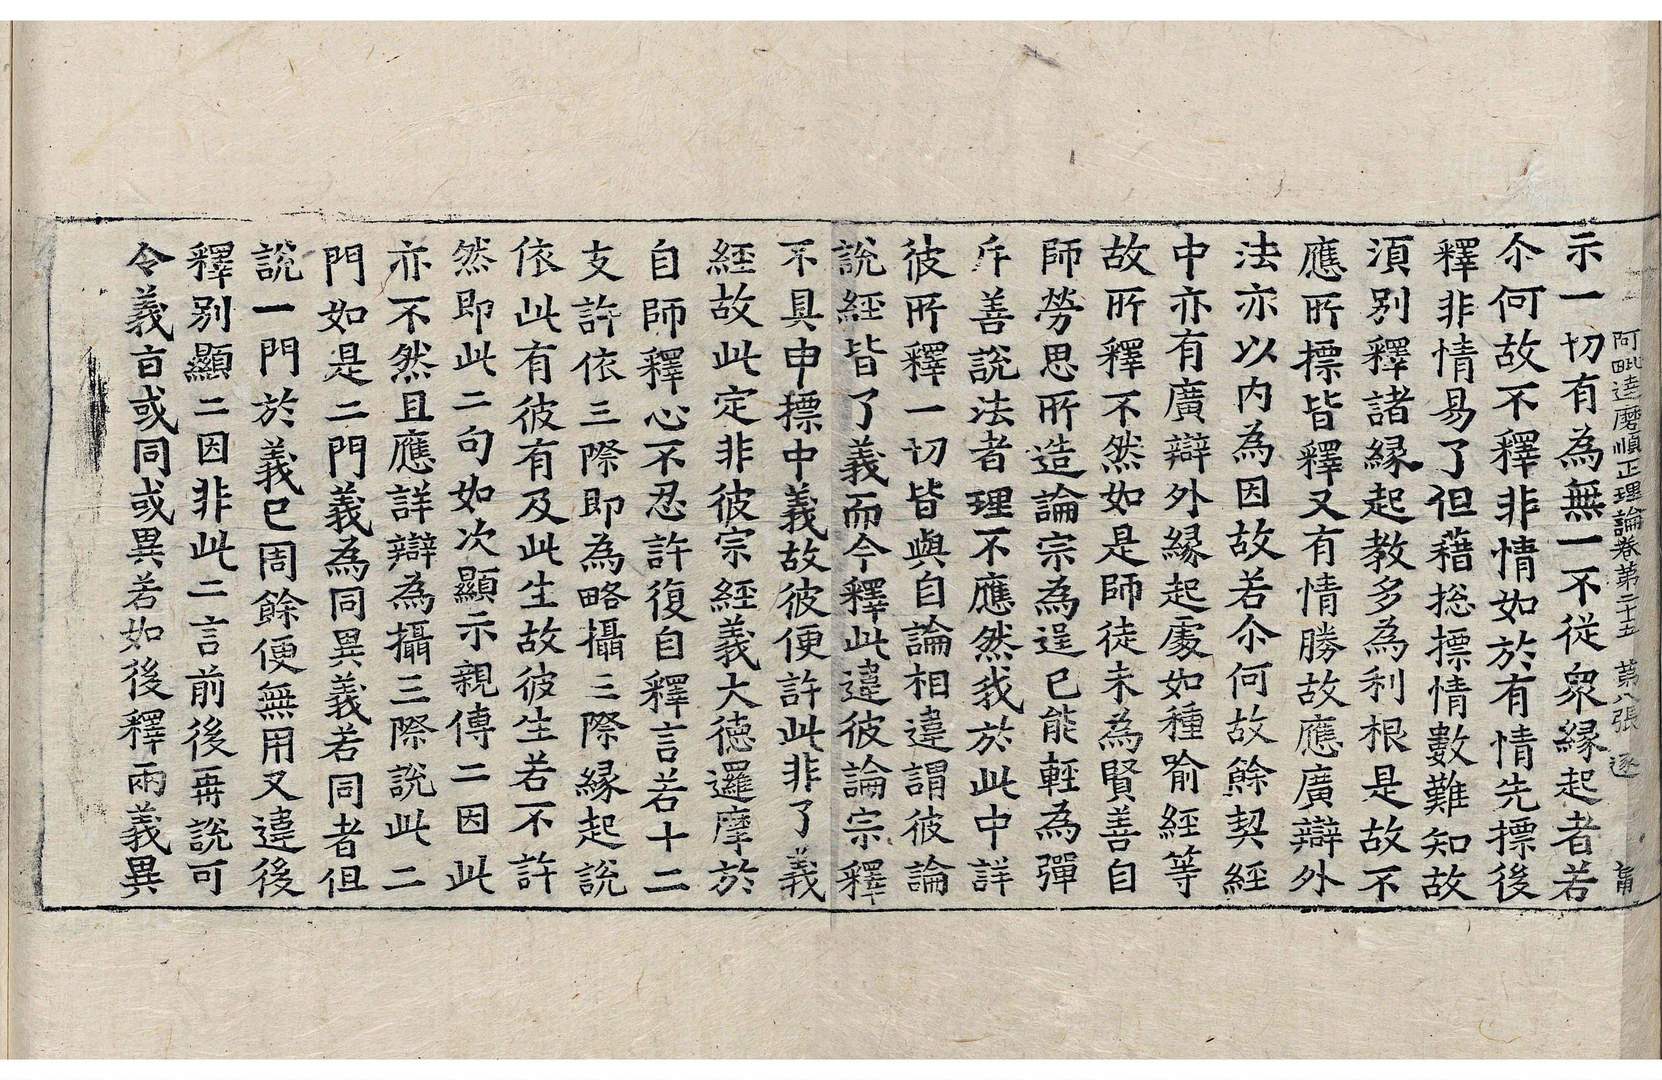 阿毗達磨順正理論卷第二十五 第八張 逐
示一切有為無一不從衆緣起者若
尒何故不釋非情如於有情先摽後
釋非情易了但藉捴摽情數難知故
湏別釋諸緣起教多為利根是故不
應所摽皆釋又有情勝故應廣辯外
法亦以內為因故若尒何故餘契經
中亦有廣辯外緣起處如種喻經等
故所釋不然如是師徒未為賢善自
師勞思所造論宗為逞已能輕為彈
斥善說法者理不應然我於此中詳
彼所釋一切皆與自論相違謂彼論
說經皆了義而今釋此違彼論宗釋
不具申摽中義故彼便許此非了義
經故此定非彼宗經義大德邏摩於
自師釋心不忍許復自釋言若十二
支許依三際即為略攝三際緣起說
依此有彼有及此生故彼生若不許
然即此二句如次顯示親傳二因此
亦不然且應詳辯為攝三際說此二
門如是二門義為同異義若同者但
說一門於義已周餘便無用又違後
釋別顯二因非此二言前後再說可
令義言或同或異若如後釋兩義異